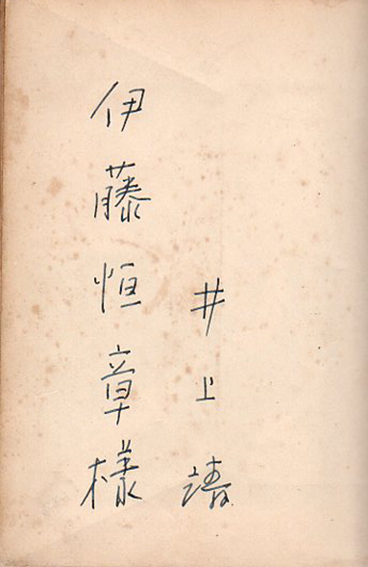 井上靖
伊藤恒章様